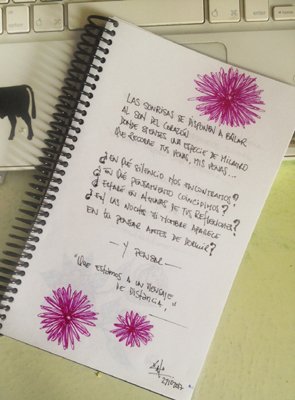 LAS SONRISAS SE DISPONEN A BAILAR
AL SON DEL CORAZÓN
DONDE SIENTES UNA ESPECIE DE MILAGRO
QUE RECORRE TUS VENAS, MIS VENAS...
¿EN QUÉ SILENCIO NOS ENCONTRAMOS?
¿EN QUÉ PENSAMIENTO COINCIDIMOS?
¿ESTARÉ EN ALGUNAS DE TUS REFLEXIONES?
¿EN LAS NOCHES MI NOMBRE APARECE
EN TU PENSAR ANTES DE DORMIR?
— Y PENSAR —
"QUE ESTAMOS A UN MENSAJE
DE DISTANCIA,"